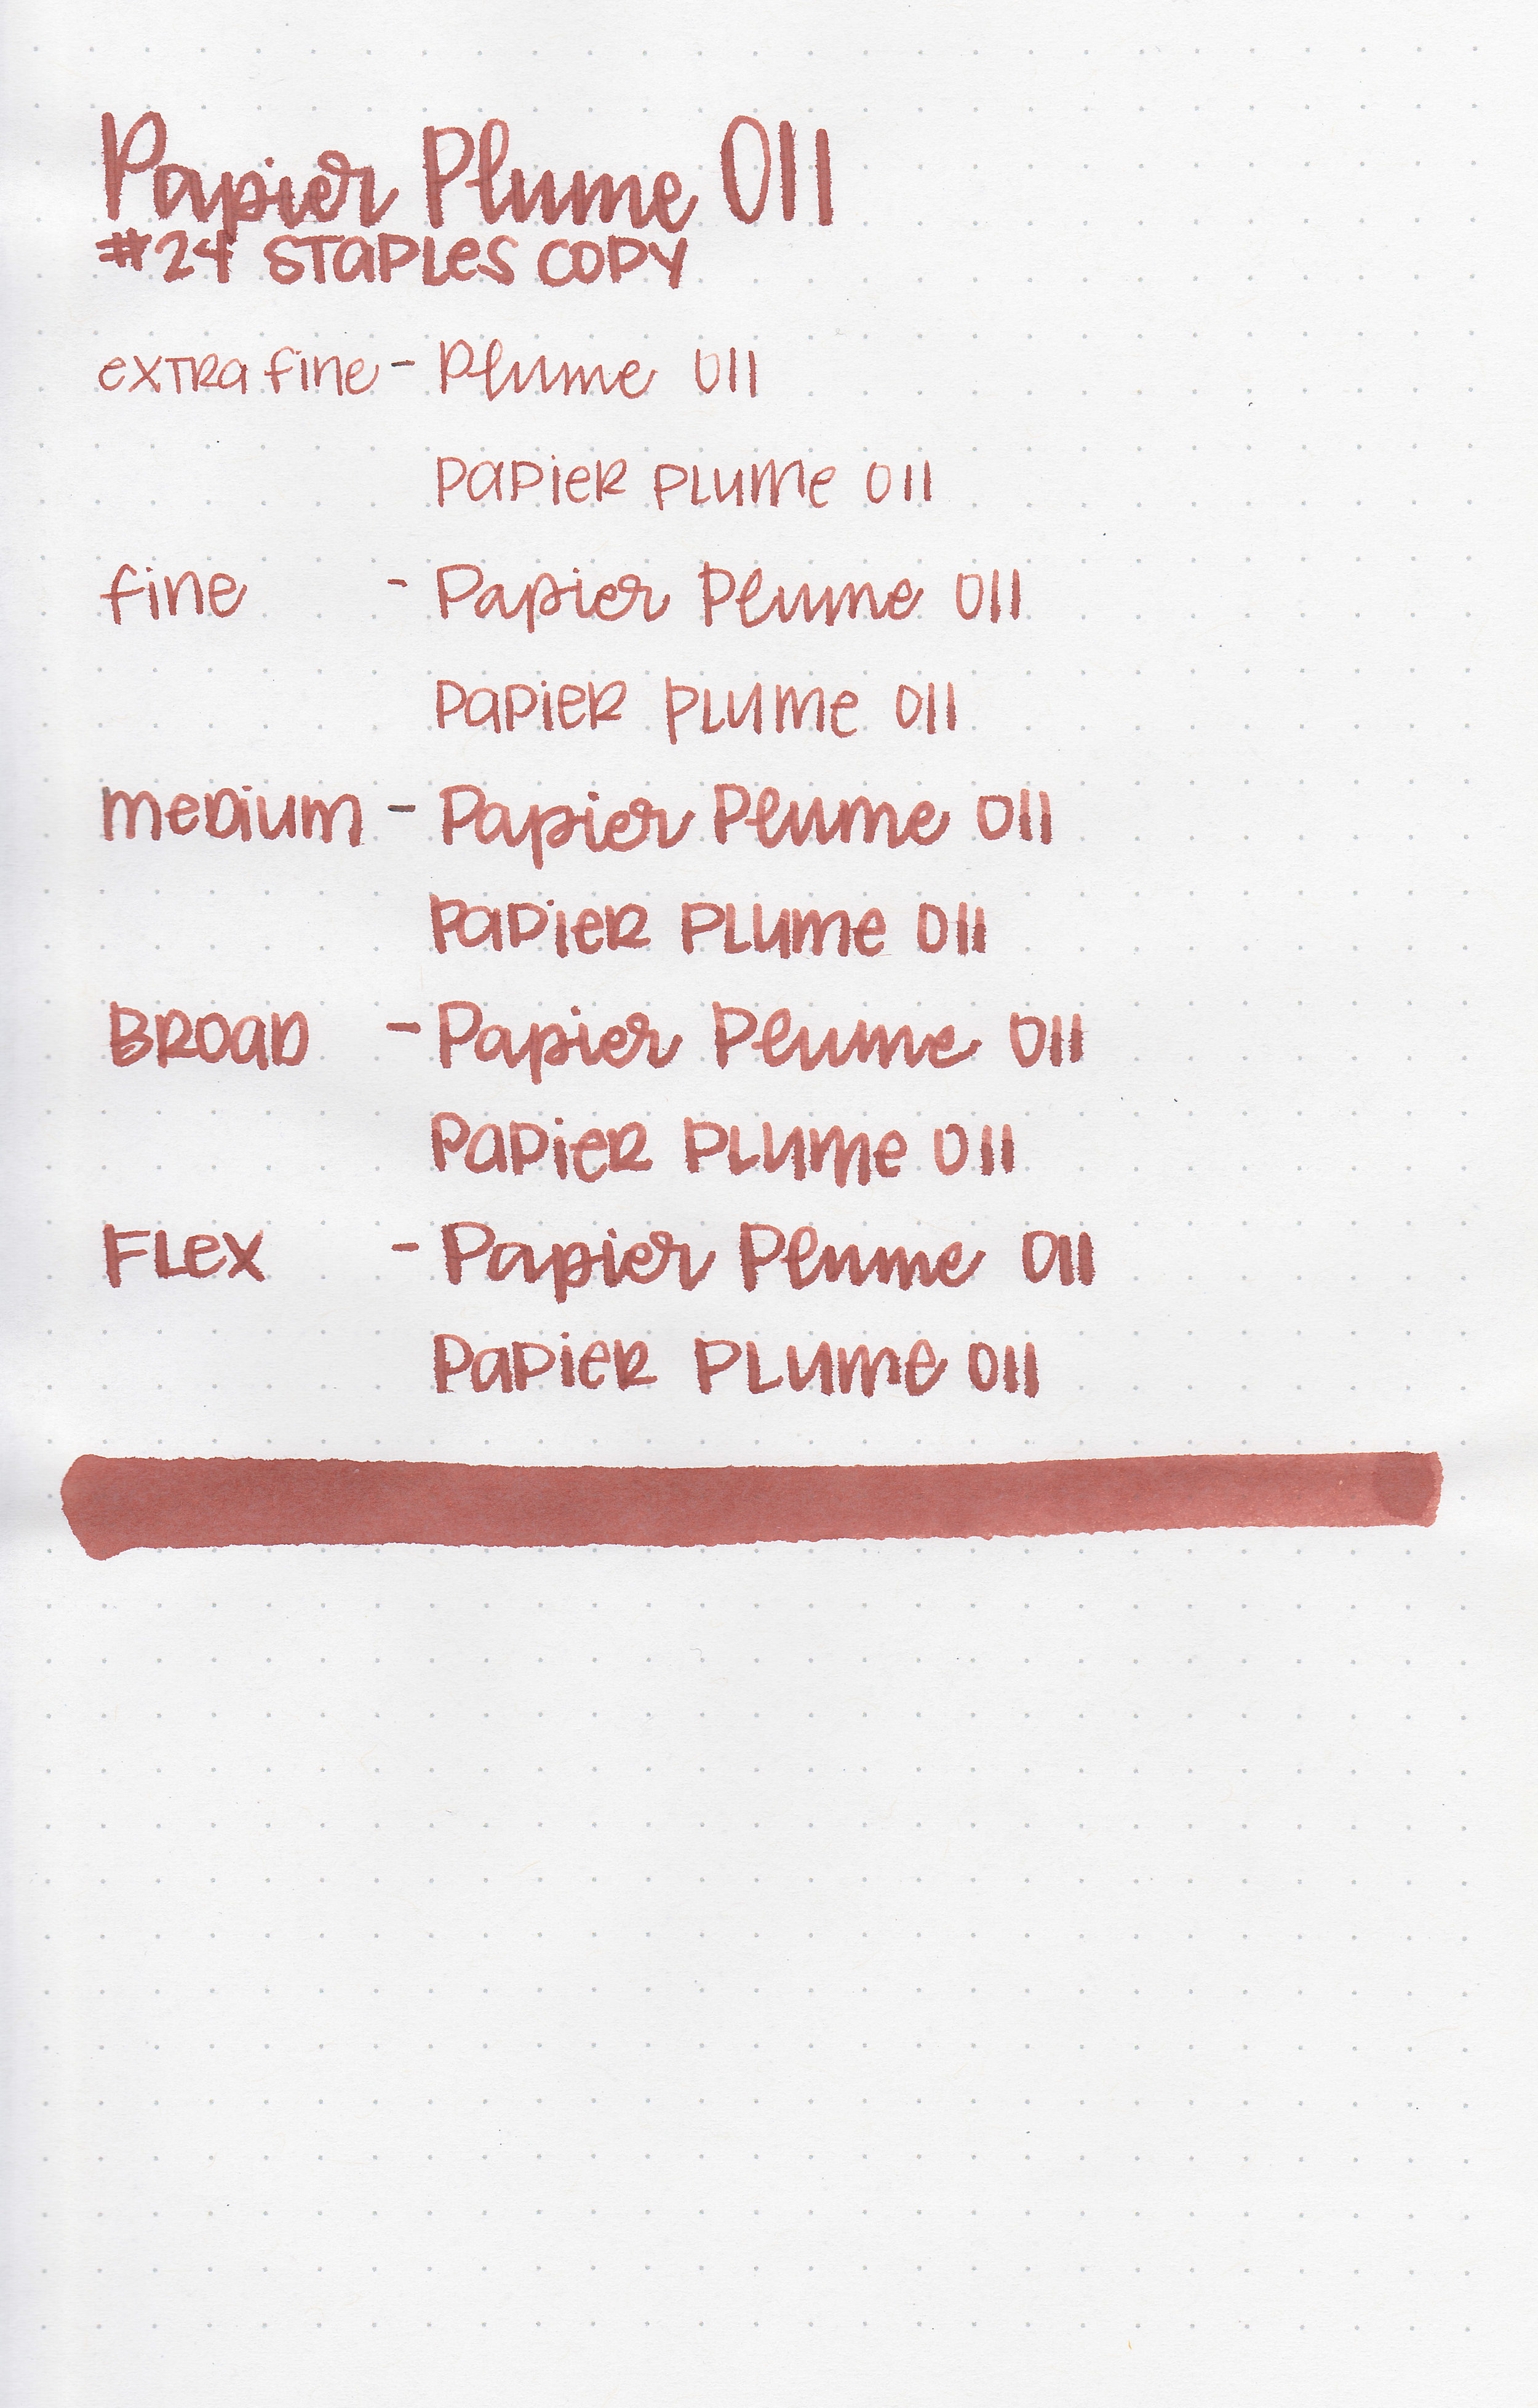 Papier Plume 011
#24 STAPLES COPY
extra fine - Plume 011
Papier Plume 011
fine - Papier Plume 011
Papier Plume 011
medium - Papier Plume 011
Papier Plume 011
BROAD - Papier Plume 011
Papier Plume 011
FLEX - Papier Plume 011
Papier Plume 011